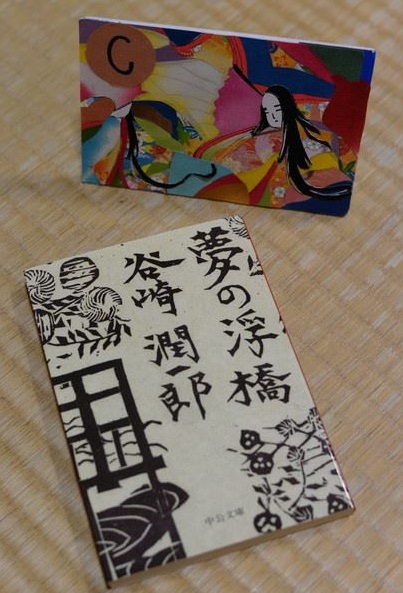 C
夢の浮橋
谷崎潤一郎
中公文庫